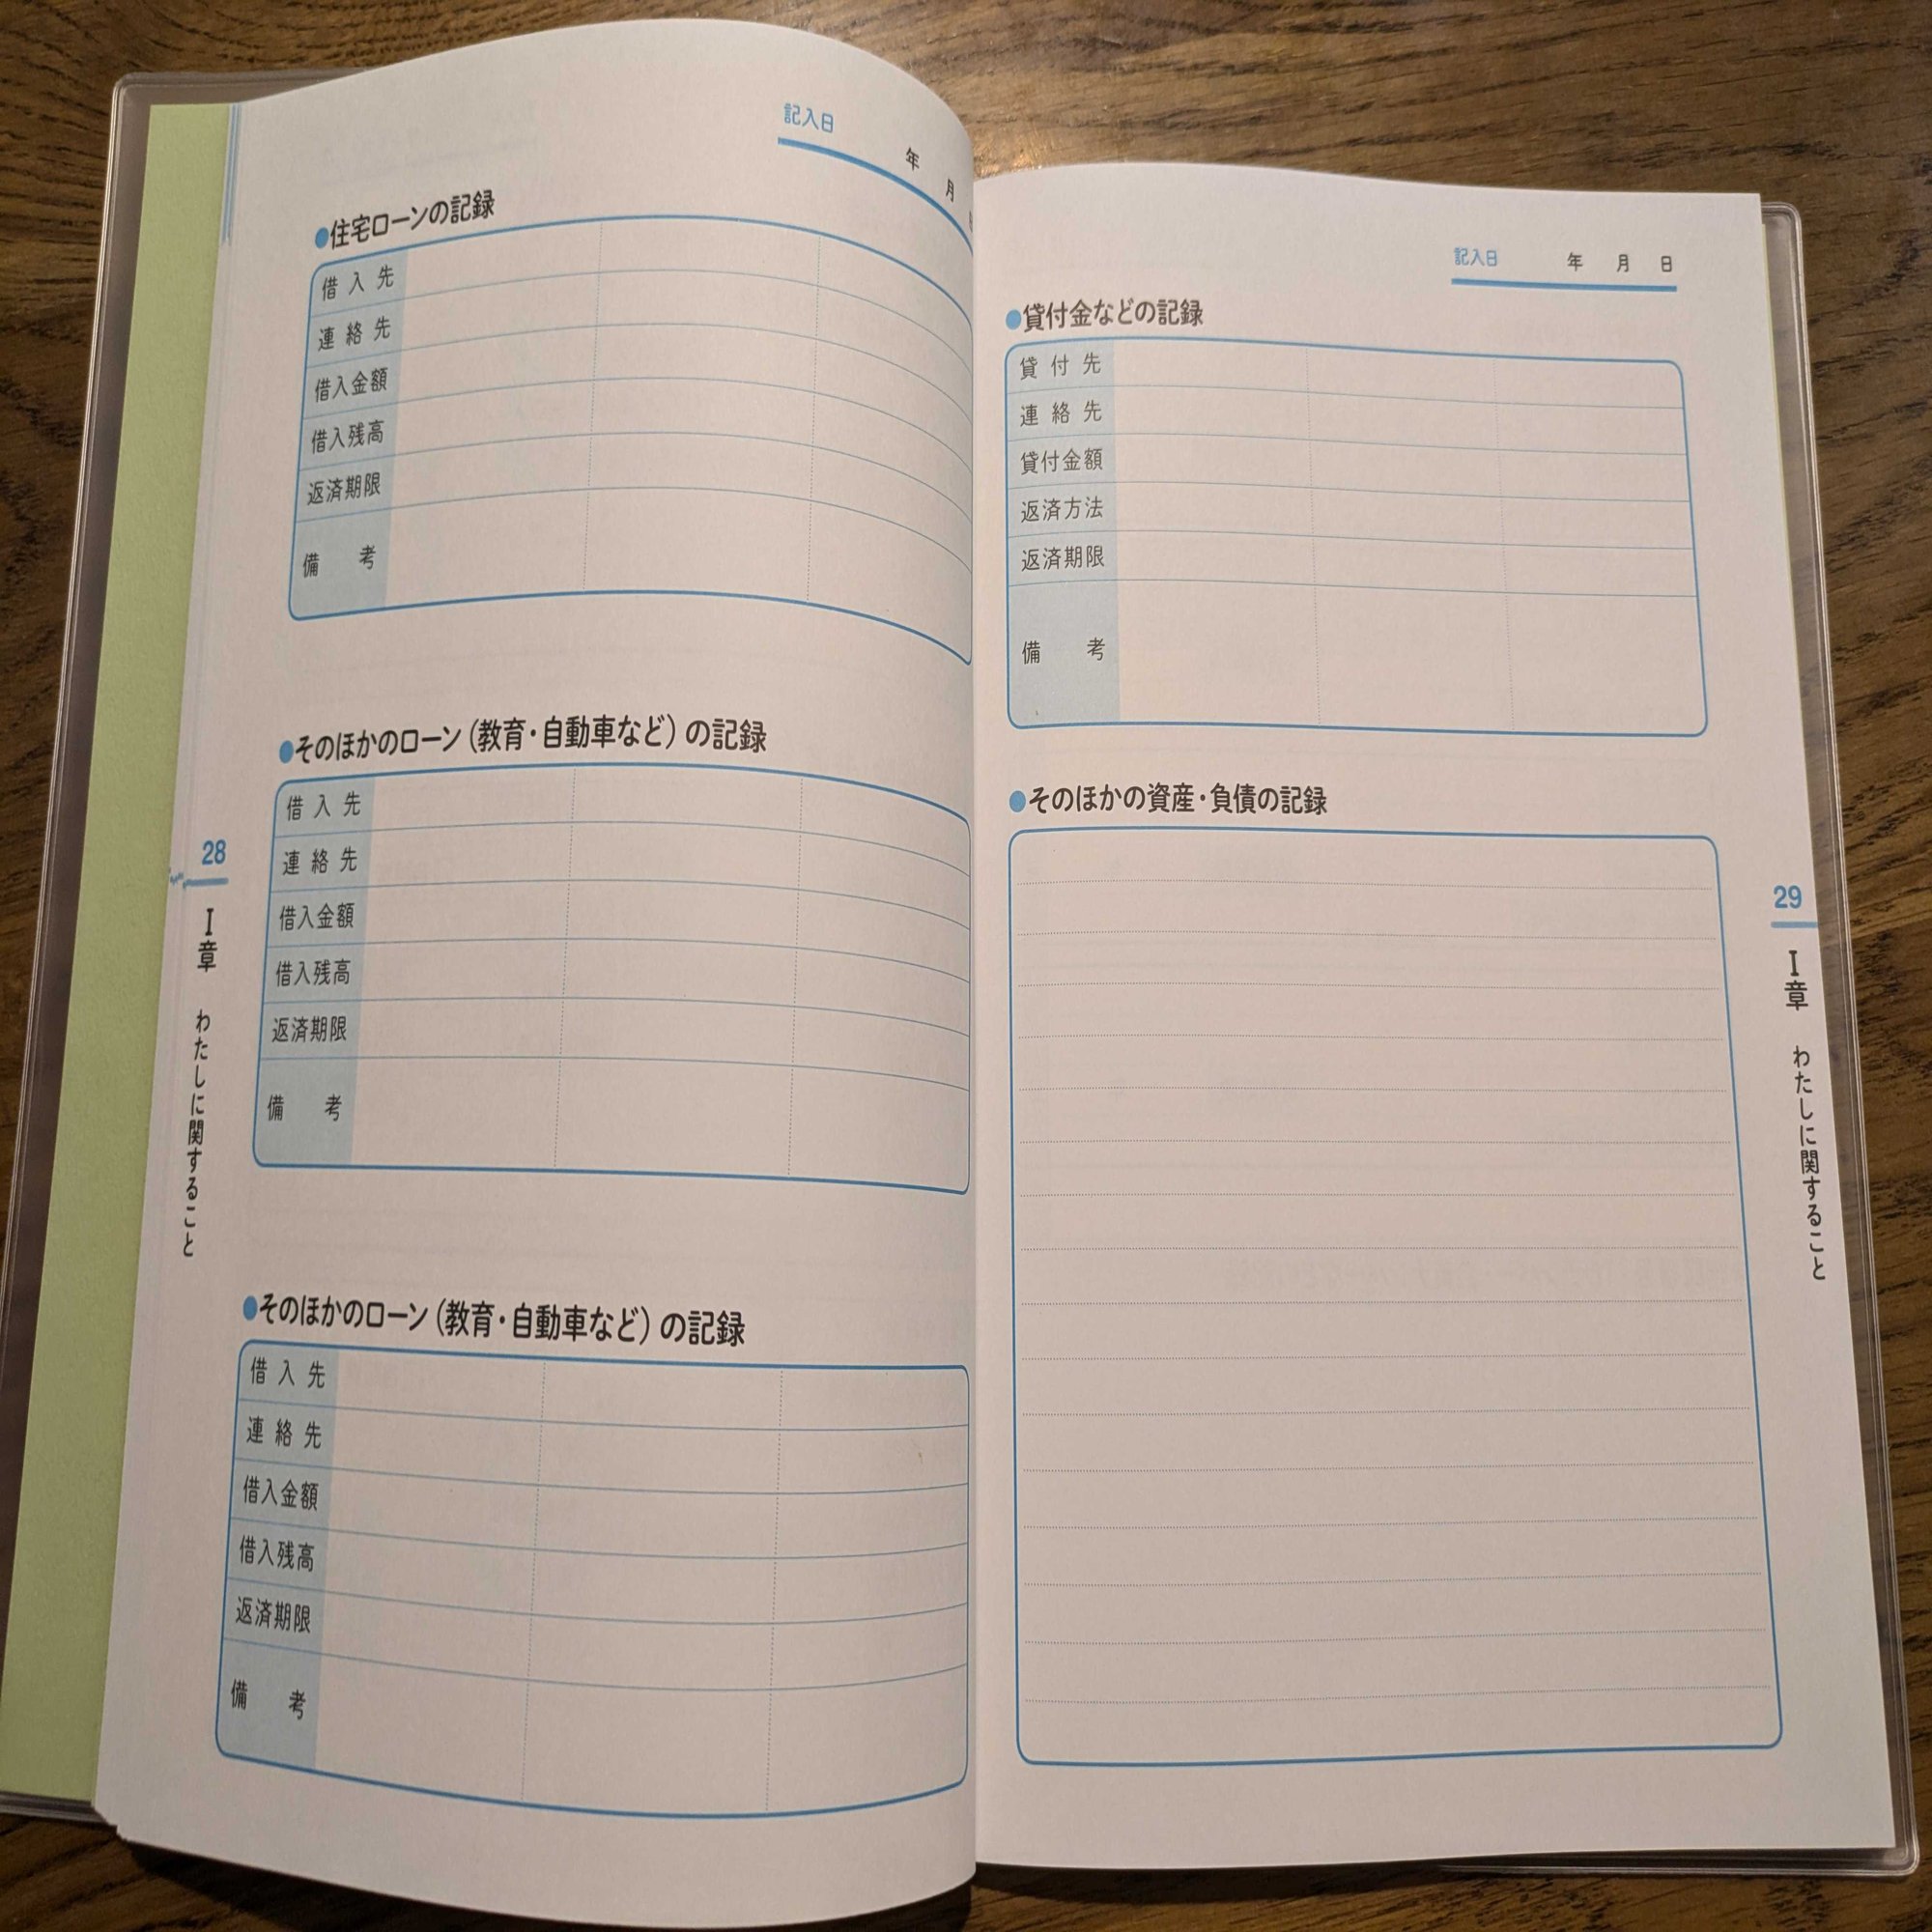 記入日 年 月
●住宅ローンの記録
借入先
連絡先
借入金額
借入残高
返済期限
備考
●そのほかのローン（教育・自動車など）の記録
借入先
連絡先
借入金額
借入残高
返済期限
備考
●そのほかのローン（教育・自動車など）の記録
借入先
連絡先
借入金額
借入残高
返済期限
備考
28
Ⅰ章 わたしに関すること
記入日 年 月 日
●貸付金などの記録
貸付先
連絡先
貸付金額
返済方法
返済期限
備考
●そのほかの資産・負債の記録
29
Ⅰ章 わたしに関すること